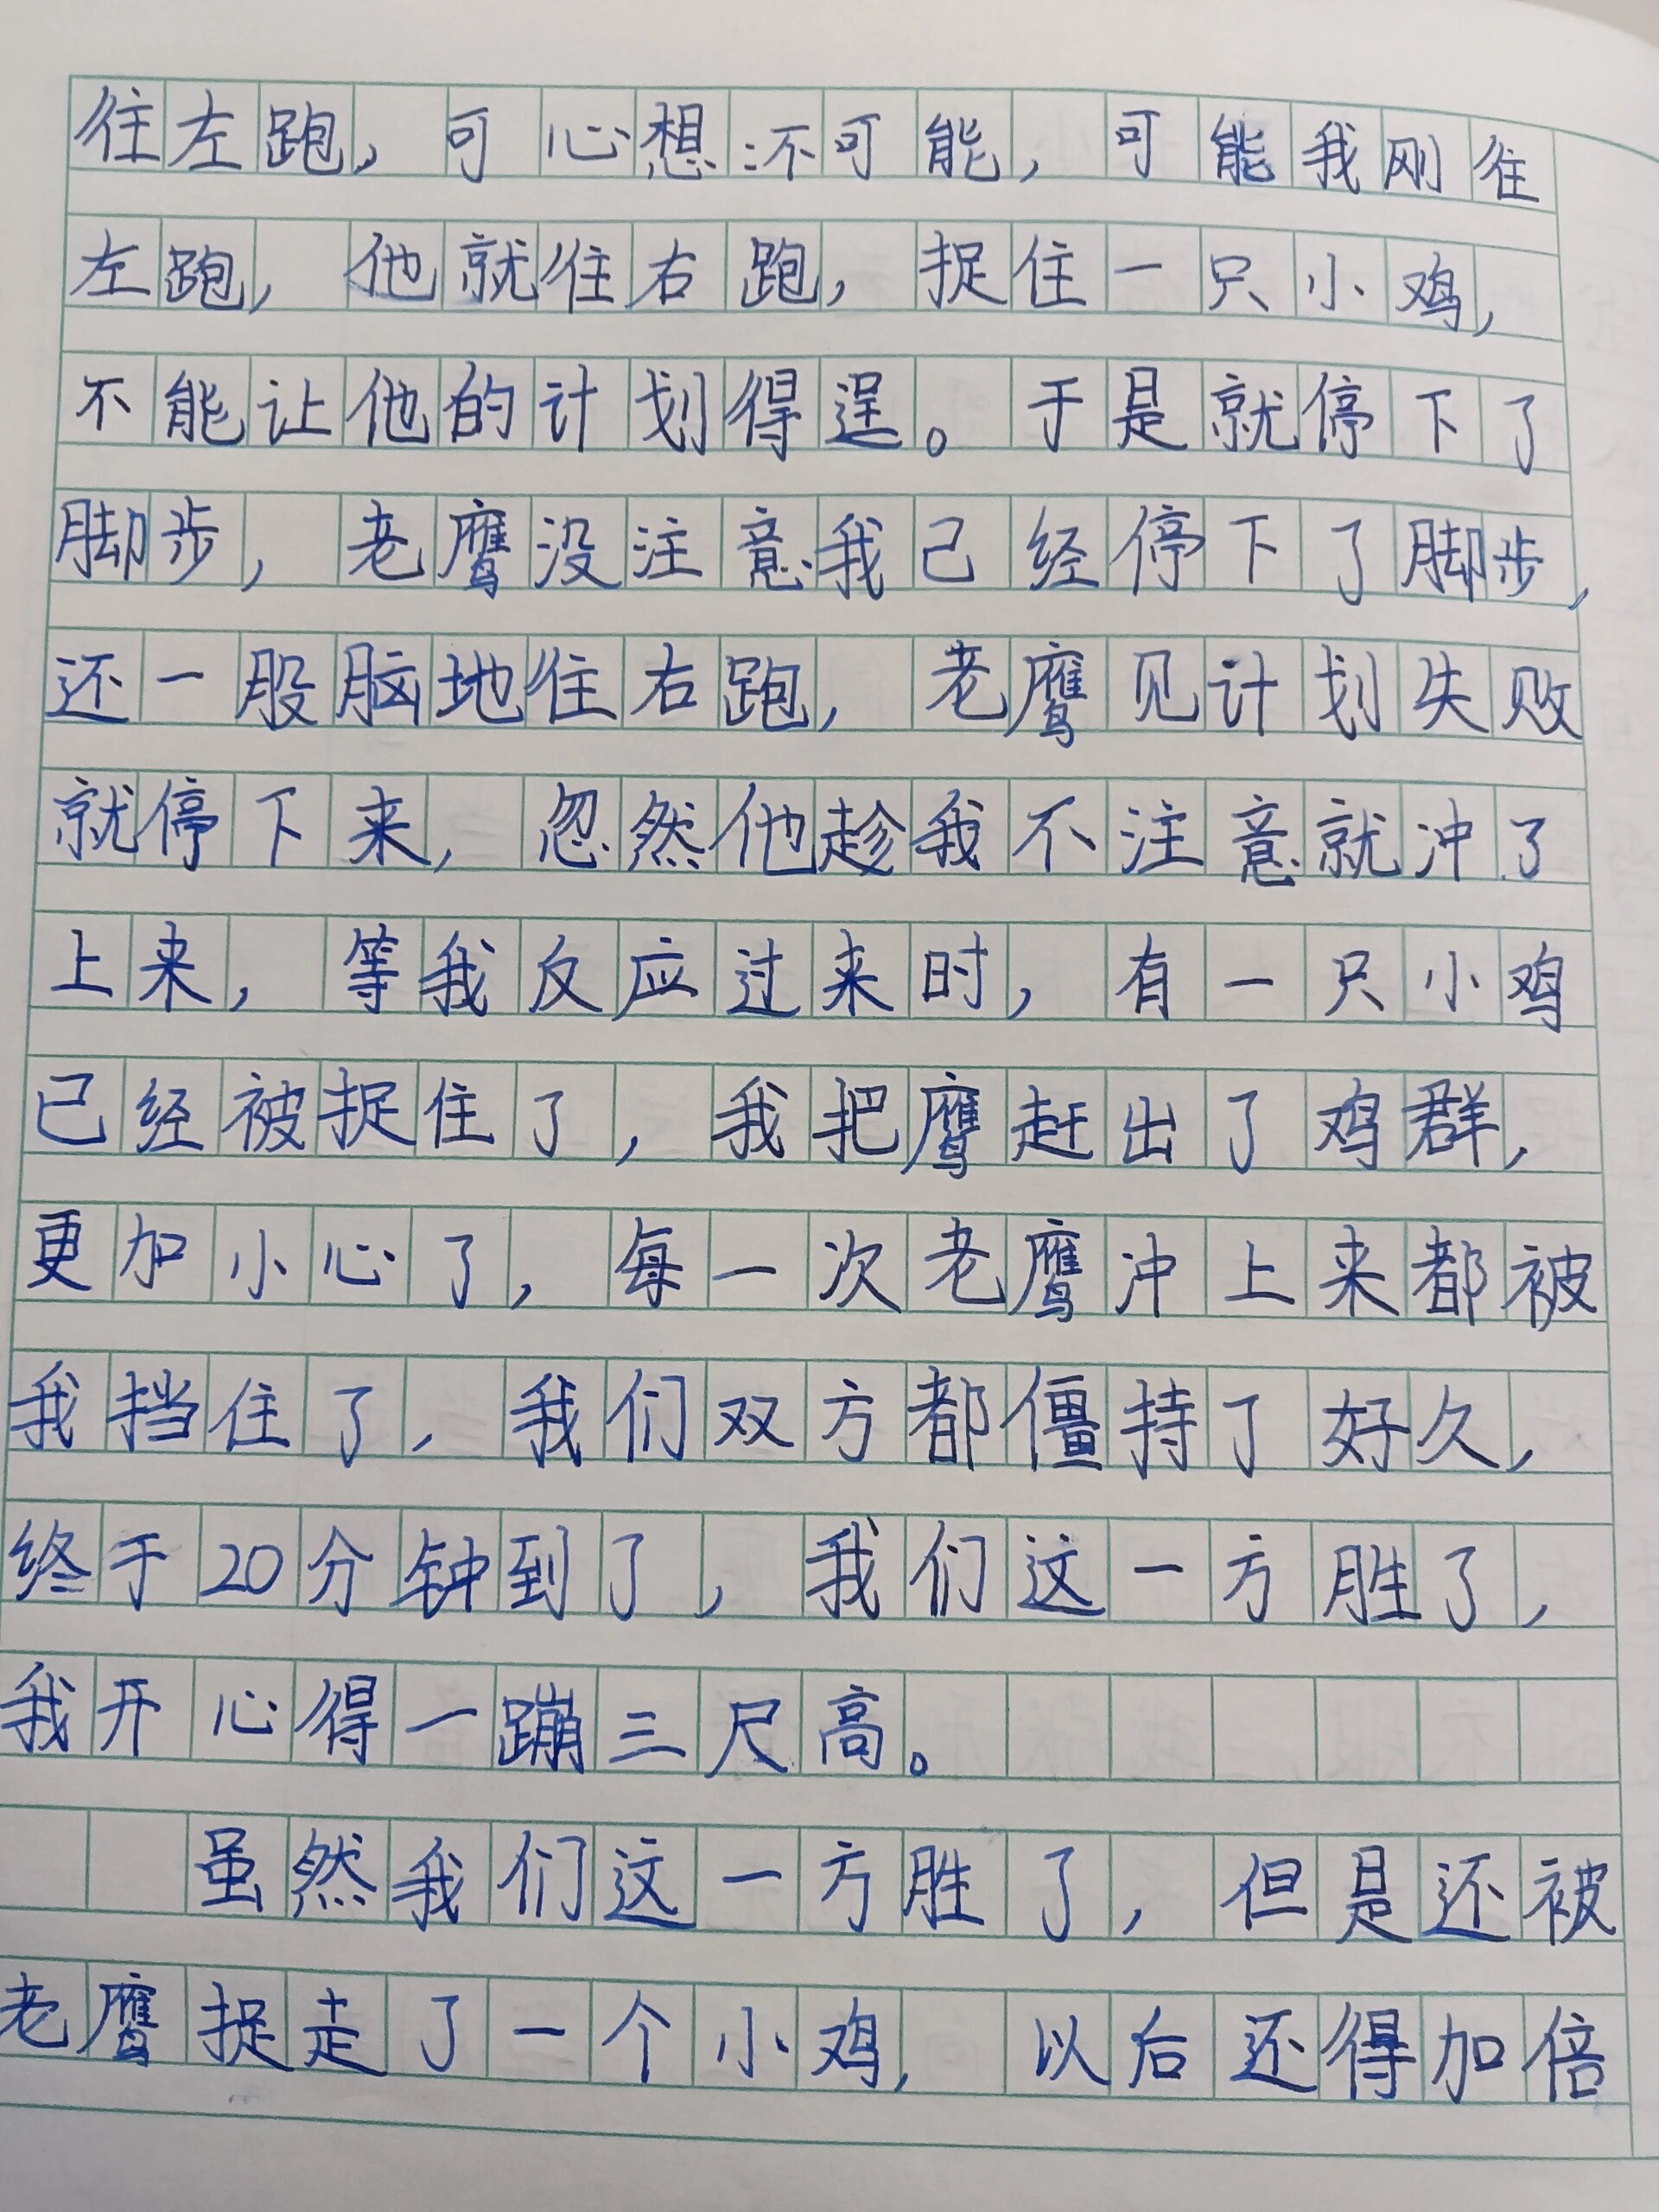 往左跑，可心想：不可能，可能我刚往
左跑，他就往右跑，捉住一只小鸡，
不能让他的计划得逞。于是就停下了
脚步，老鹰没注意我已经停下了脚步，
还一股脑地往右跑，老鹰见计划失败
就停下来，忽然他趁我不注意就冲了
上来，等我反应过来时，有一只小鸡
已经被捉住了，我把鹰赶出了鸡群，
更加小心了，每一次老鹰冲上来都被
我挡住了，我们双方都僵持了好久，
终于20分钟到了，我们这一方胜了，
我开心得一蹦三尺高。
虽然我们这一方胜了，但是还被
老鹰捉走了一个小鸡，以后还得加倍